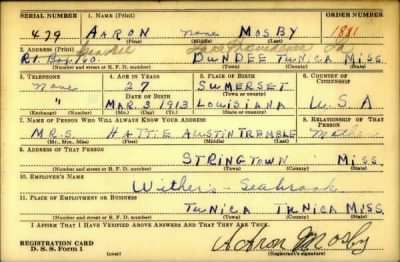 SERIAL NUMBER 1. NAME (Print) ORDER NUMBER
479 AARON none MOSBY 1881
(First) (Middle) (Last)
2. ADDRESS (Print) Lake Providence La
Rt. Box 760. DUNDEE TUNICA MISS.
(Number and street or R. F. D. number) (Town) (County) (State)
3. TELEPHONE 4. AGE IN YEARS 5. PLACE OF BIRTH 6. COUNTRY OF CITIZENSHIP
None 27 SUMERSET
DATE OF BIRTH (Town or county)
" MAR. 3 1913 LOUISIANA U. S. A
(Exchange) (Number) (Mo.) (Day) (Yr.) (State or country)
7. NAME OF PERSON WHO WILL ALWAYS KNOW YOUR ADDRESS 8. RELATIONSHIP OF THAT PERSON
MRS. HATTIE AUSTIN TREMBLE Mother
(Mr., Mrs., Miss) (First) (Middle) (Last)
9. ADDRESS OF THAT PERSON
STRINGTOWN MISS.
(Number and street or R. F. D. number) (Town) (County) (State)
10. EMPLOYER'S NAME
Withers - Seabrook
11. PLACE OF EMPLOYMENT OR BUSINESS
TUNICA TUNICA MISS
(Number and street or R. F. D. number) (Town) (County) (State)
I AFFIRM THAT I HAVE VERIFIED ABOVE ANSWERS AND THAT THEY ARE TRUE.
REGISTRATION CARD
D. S. S. Form 1 (over) Aaron Mosby
(Registrant's signature)